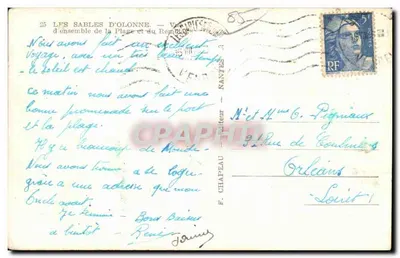 25 LES SABLES D'OLONNE. -
d'ensemble de la Plage et du Remblai
85
Nous avons fait un excellent
voyage, avec un très beau temps
le soleil est chaud
ce matin nous avons fait une
bonne promenade sur le port
et la plage.
Il y a beaucoup de monde
Nous avons trouvé à se loger
grâce à une adresse que mon
Oncle avait.
Je termine - Bons Baisers
à bientôt -
F. CHAPEAU NANTES
RF
Mr et Mme C.
Rue de
Orléans
Loiret
CARTEPOSTALE